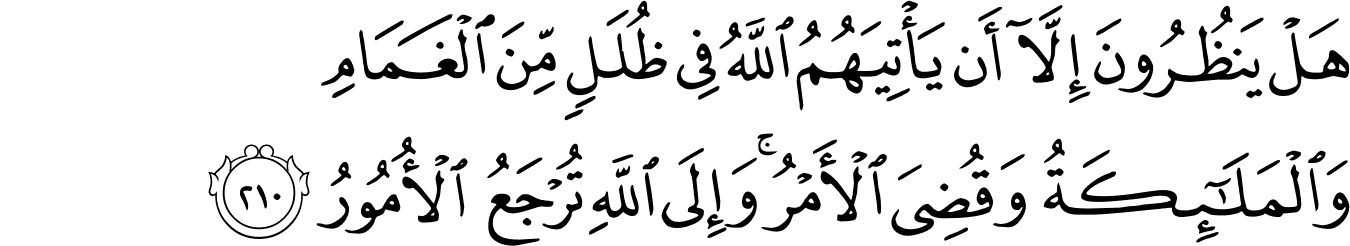 هَلْ يَنظُرُونَ إِلَّآ أَن يَأْتِيَهُمُ ٱللَّهُ فِى ظُلَلٍ مِّنَ ٱلْغَمَامِ
وَٱلْمَلَـٰٓئِكَةُ وَقُضِىَ ٱلْأَمْرُ ۚ وَإِلَى ٱللَّهِ تُرْجَعُ ٱلْأُمُورُ ٢١٠